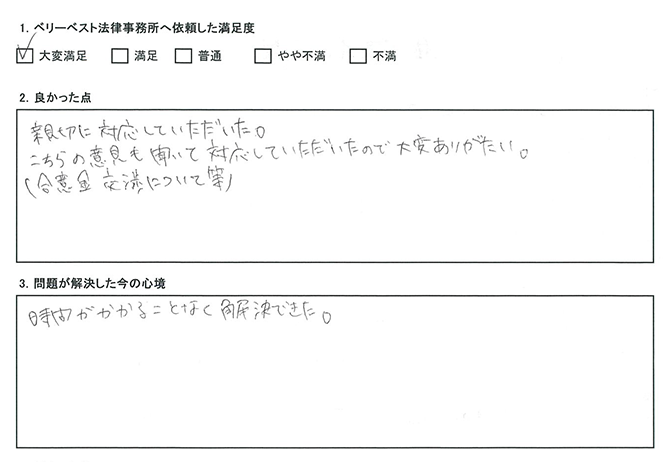 1. ベリーベスト法律事務所へ依頼した満足度
☑ 大変満足 □ 満足 □ 普通 □ やや不満 □ 不満
2. 良かった点
親切に対応していただいた。
こちらの意見も聞いて対応していただいたので大変ありがたい。
(合意金交渉について等)
3. 問題が解決した今の心境
時間がかかることなく解決できた。